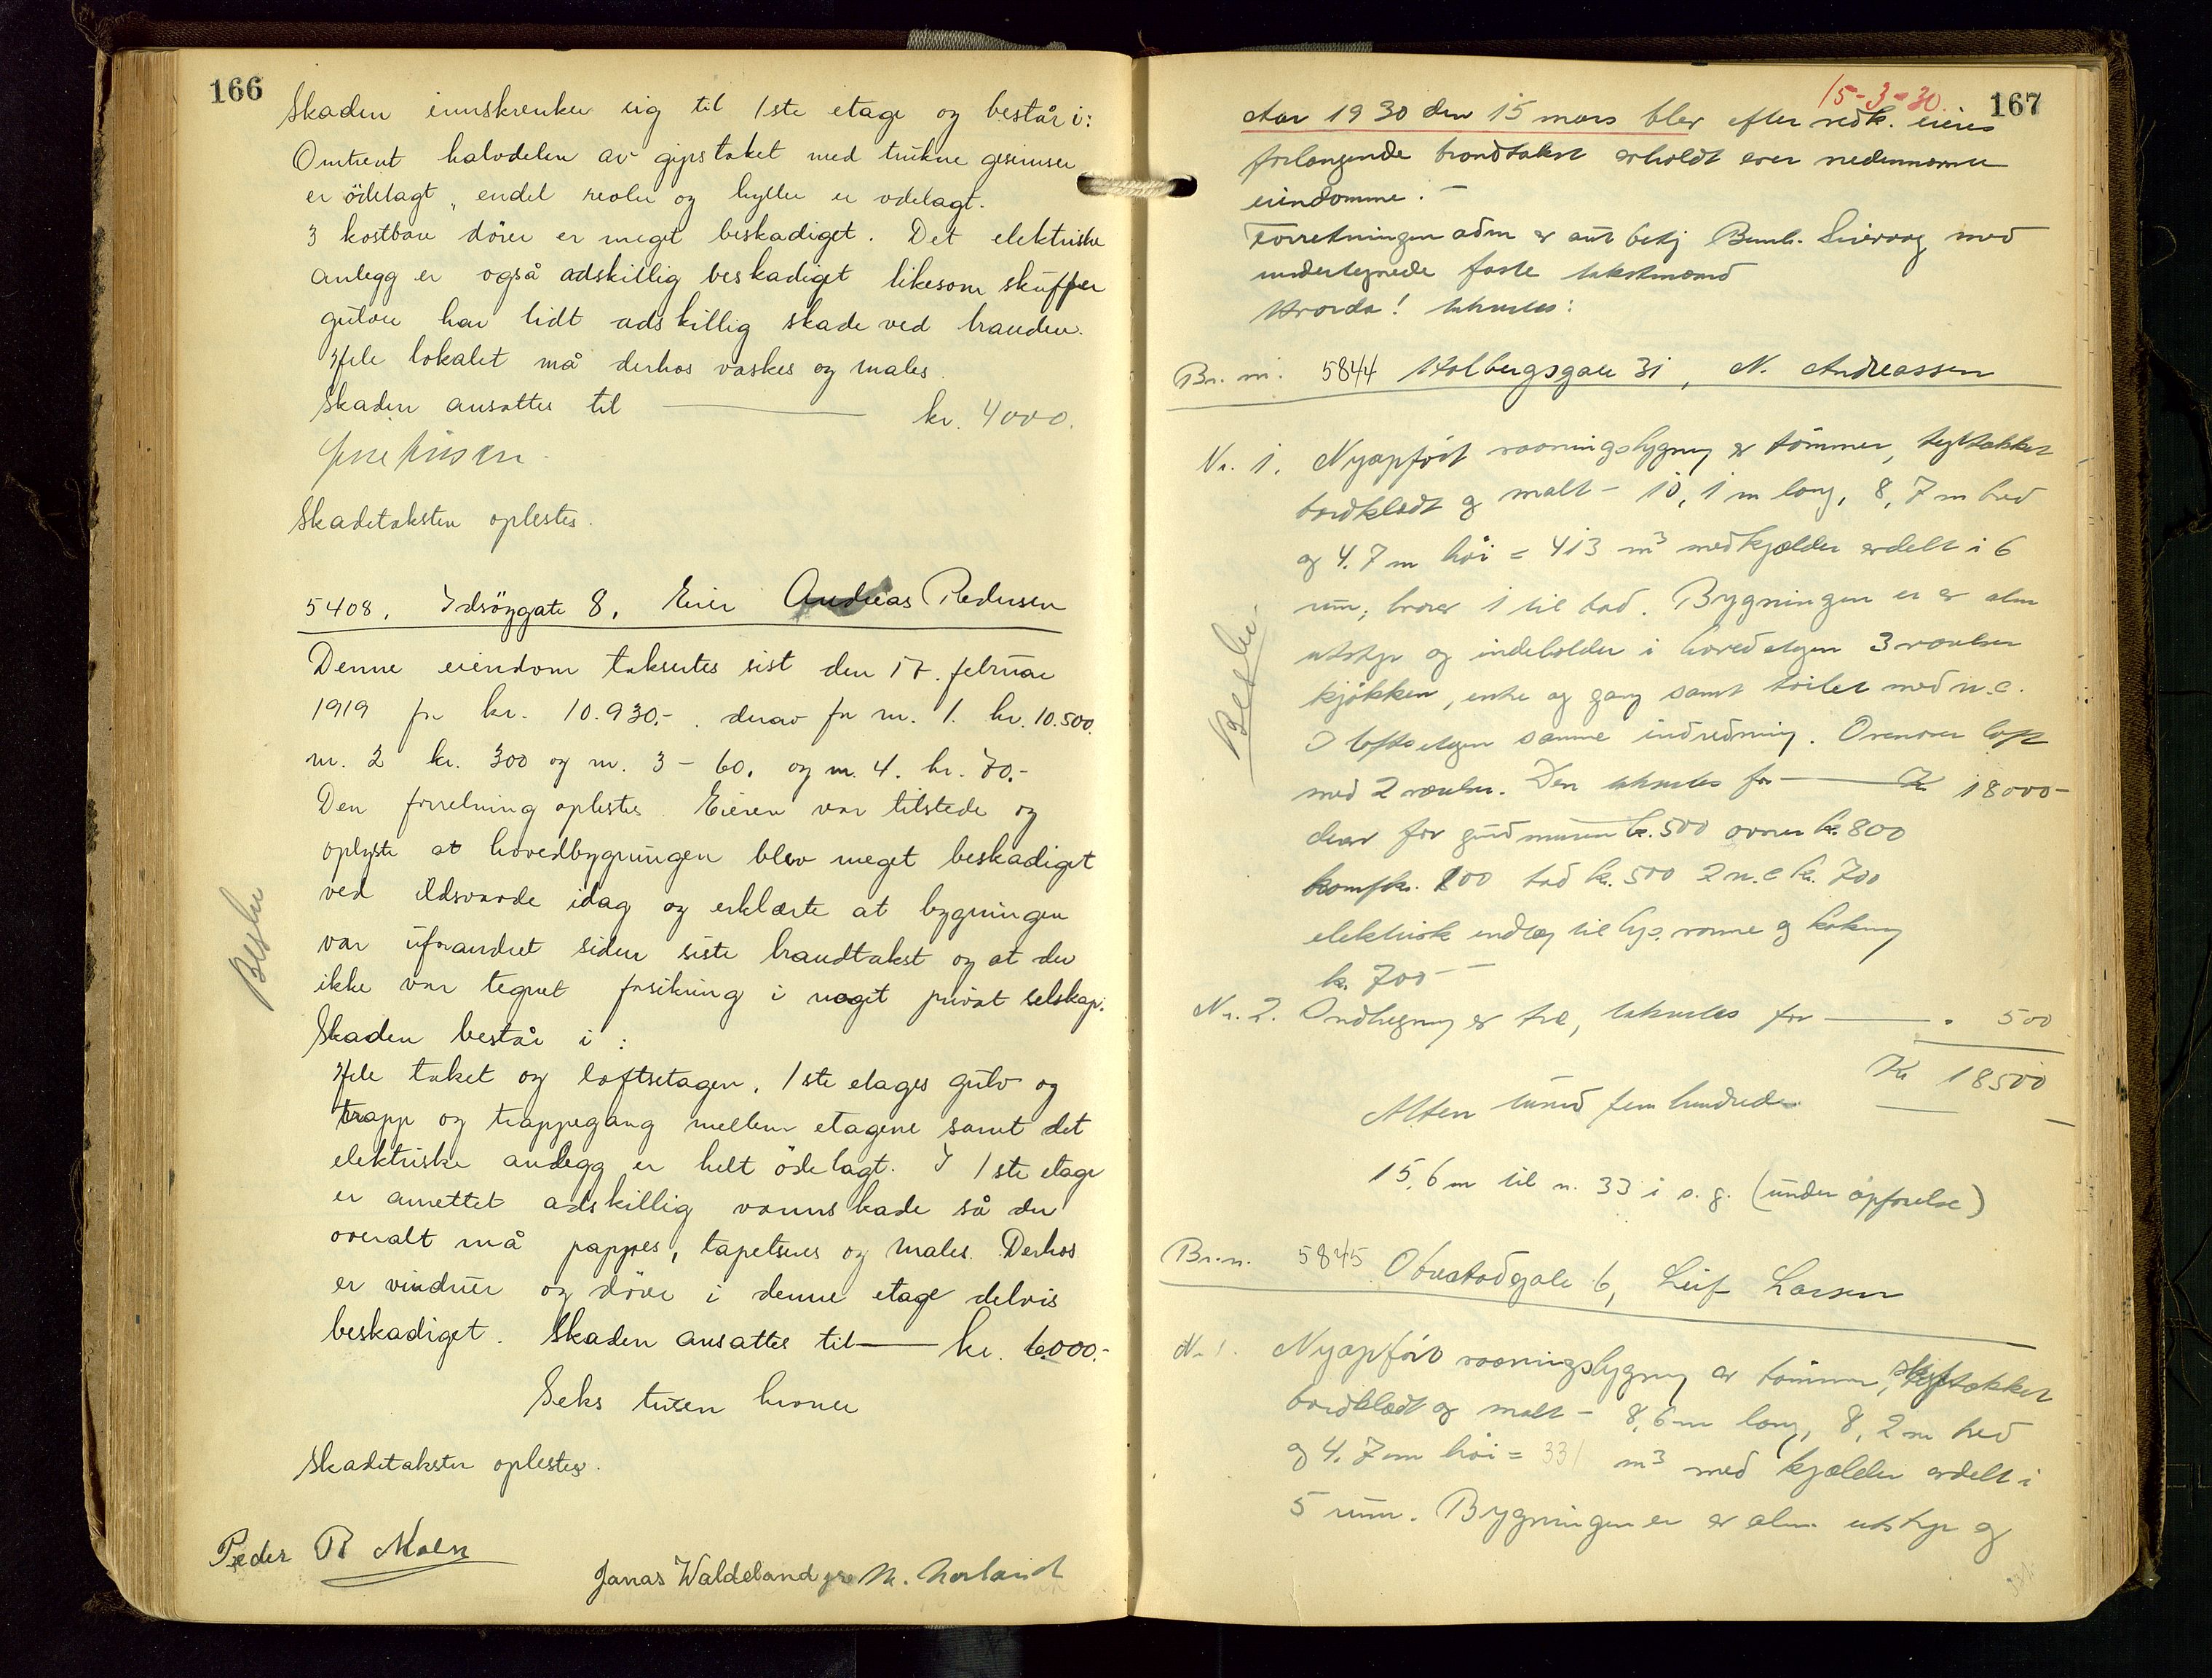 166
Skaden innskrenker sig til 1ste etage og består i:
Omtrent halvdelen av gipstaket med trukne gesimser
er ödelagt, endel reoler og hyller er ödelagt.
3 kostbare dörer er meget beskadiget. Det elektriske
anlegg er også adskillig beskadiget likesom skuffer
gulver har lidt adskillig skade ved branden.
Hele lokalet må derhos vaskes og males.
Skaden ansattes til — kr. 4000.
Skadetaksten oplestes.
5408. Idsöygate 8. Eier Andreas Pedersen
Denne eiendom takseretes sist den 17. februar
1919 for kr. 10.930.- derav for nr. 1. kr. 10.500.
nr. 2 kr. 300 og nr. 3 - 60. og nr. 4. kr. 70.-
Den forretning oplestes. Eieren var tilstede og
oplyste at hovedbygningen blev meget beskadiget
ved ildsvaade idag og erklærte at bygningen
var uforandret siden siste brandtakst og at der
ikke var tegnet forsikring i noget privat selskap.
Skaden består i :
Hele taket og loftsetagen, 1ste etages gulv og
trapp og trappegang mellem etagene samt det
elektriske anlegg er helt ödelagt. I 1ste etage
er anrettet adskillig vannskade så der
overalt må pappes, tapetseres og males. Derhos
er vinduer og dörer i denne etage delvis
beskadiget. Skaden ansattes til — kr. 6.000.-
Seks tusen kroner
Skadetaksten oplestes.
Peder R Moen
Jonas Waldeland jr. M. Norland
15-3-30.
167
Aar 1930 den 15 mars blev efter vedk. eieres
forlangende brandtakst avholdt over nedennævnte
eiendomme.-
Forretningen adm av aut betj Bernh. Sivervag med
undertegnede faste takstmænd
Hvorda! takseres:
Br. nr. 5844 Holbergsgate 31, N. Andreassen
Nr. 1. Nyopfört vaaningsbygning av tömmer, teglækket
bordklædt og malt - 10,1 m lang, 8,7 m bred
og 4.7 m höi = 413 m³ med kjælder avdelt i 6
rum, hvorav 1 til bad. Bygningen er av alm
utstyr og indeholder i hovedetagen 3 værelser
kjökken, entre og gang samt toilet med w.c.
I loftsetagen samme indredning. Ovenover loft
med 2 værelser. Den takseres for — Kr. 18000-
derav for grundmuren kr. 500 ovner kr. 800
komf kr. 200 bad kr. 500 2 w.c kr. 700
elektrisk indlæg til lys, varme og kokning
kr. 700-
Nr. 2. Indhegning av træ, takseres for — " 500
Kr 18500
Atten tusend fem hundrede.
15,6 m til nr. 33 i s. g. (under opförelse)
Br. nr. 5845 Obrestadgate 6, Leif Larsen
Nr 1. Nyopfört vaaningsbygning av tömmer, skiftækket
bordklædt og malt - 8,6 m lang, 8,2 m bred
og 4.7 m höi = 331 m³ med kjælder avdelt i
5 rum. Bygningen er av alm utstyr og